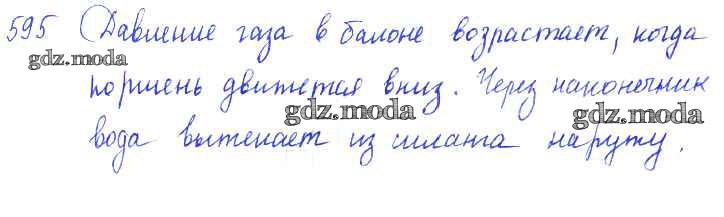 595 Давление газа в балоне возрастает, когда
gdz.moda
поршень движется вниз. Через наконечник
gdz.moda gdz.moda
вода вытекает из шланга наружу.